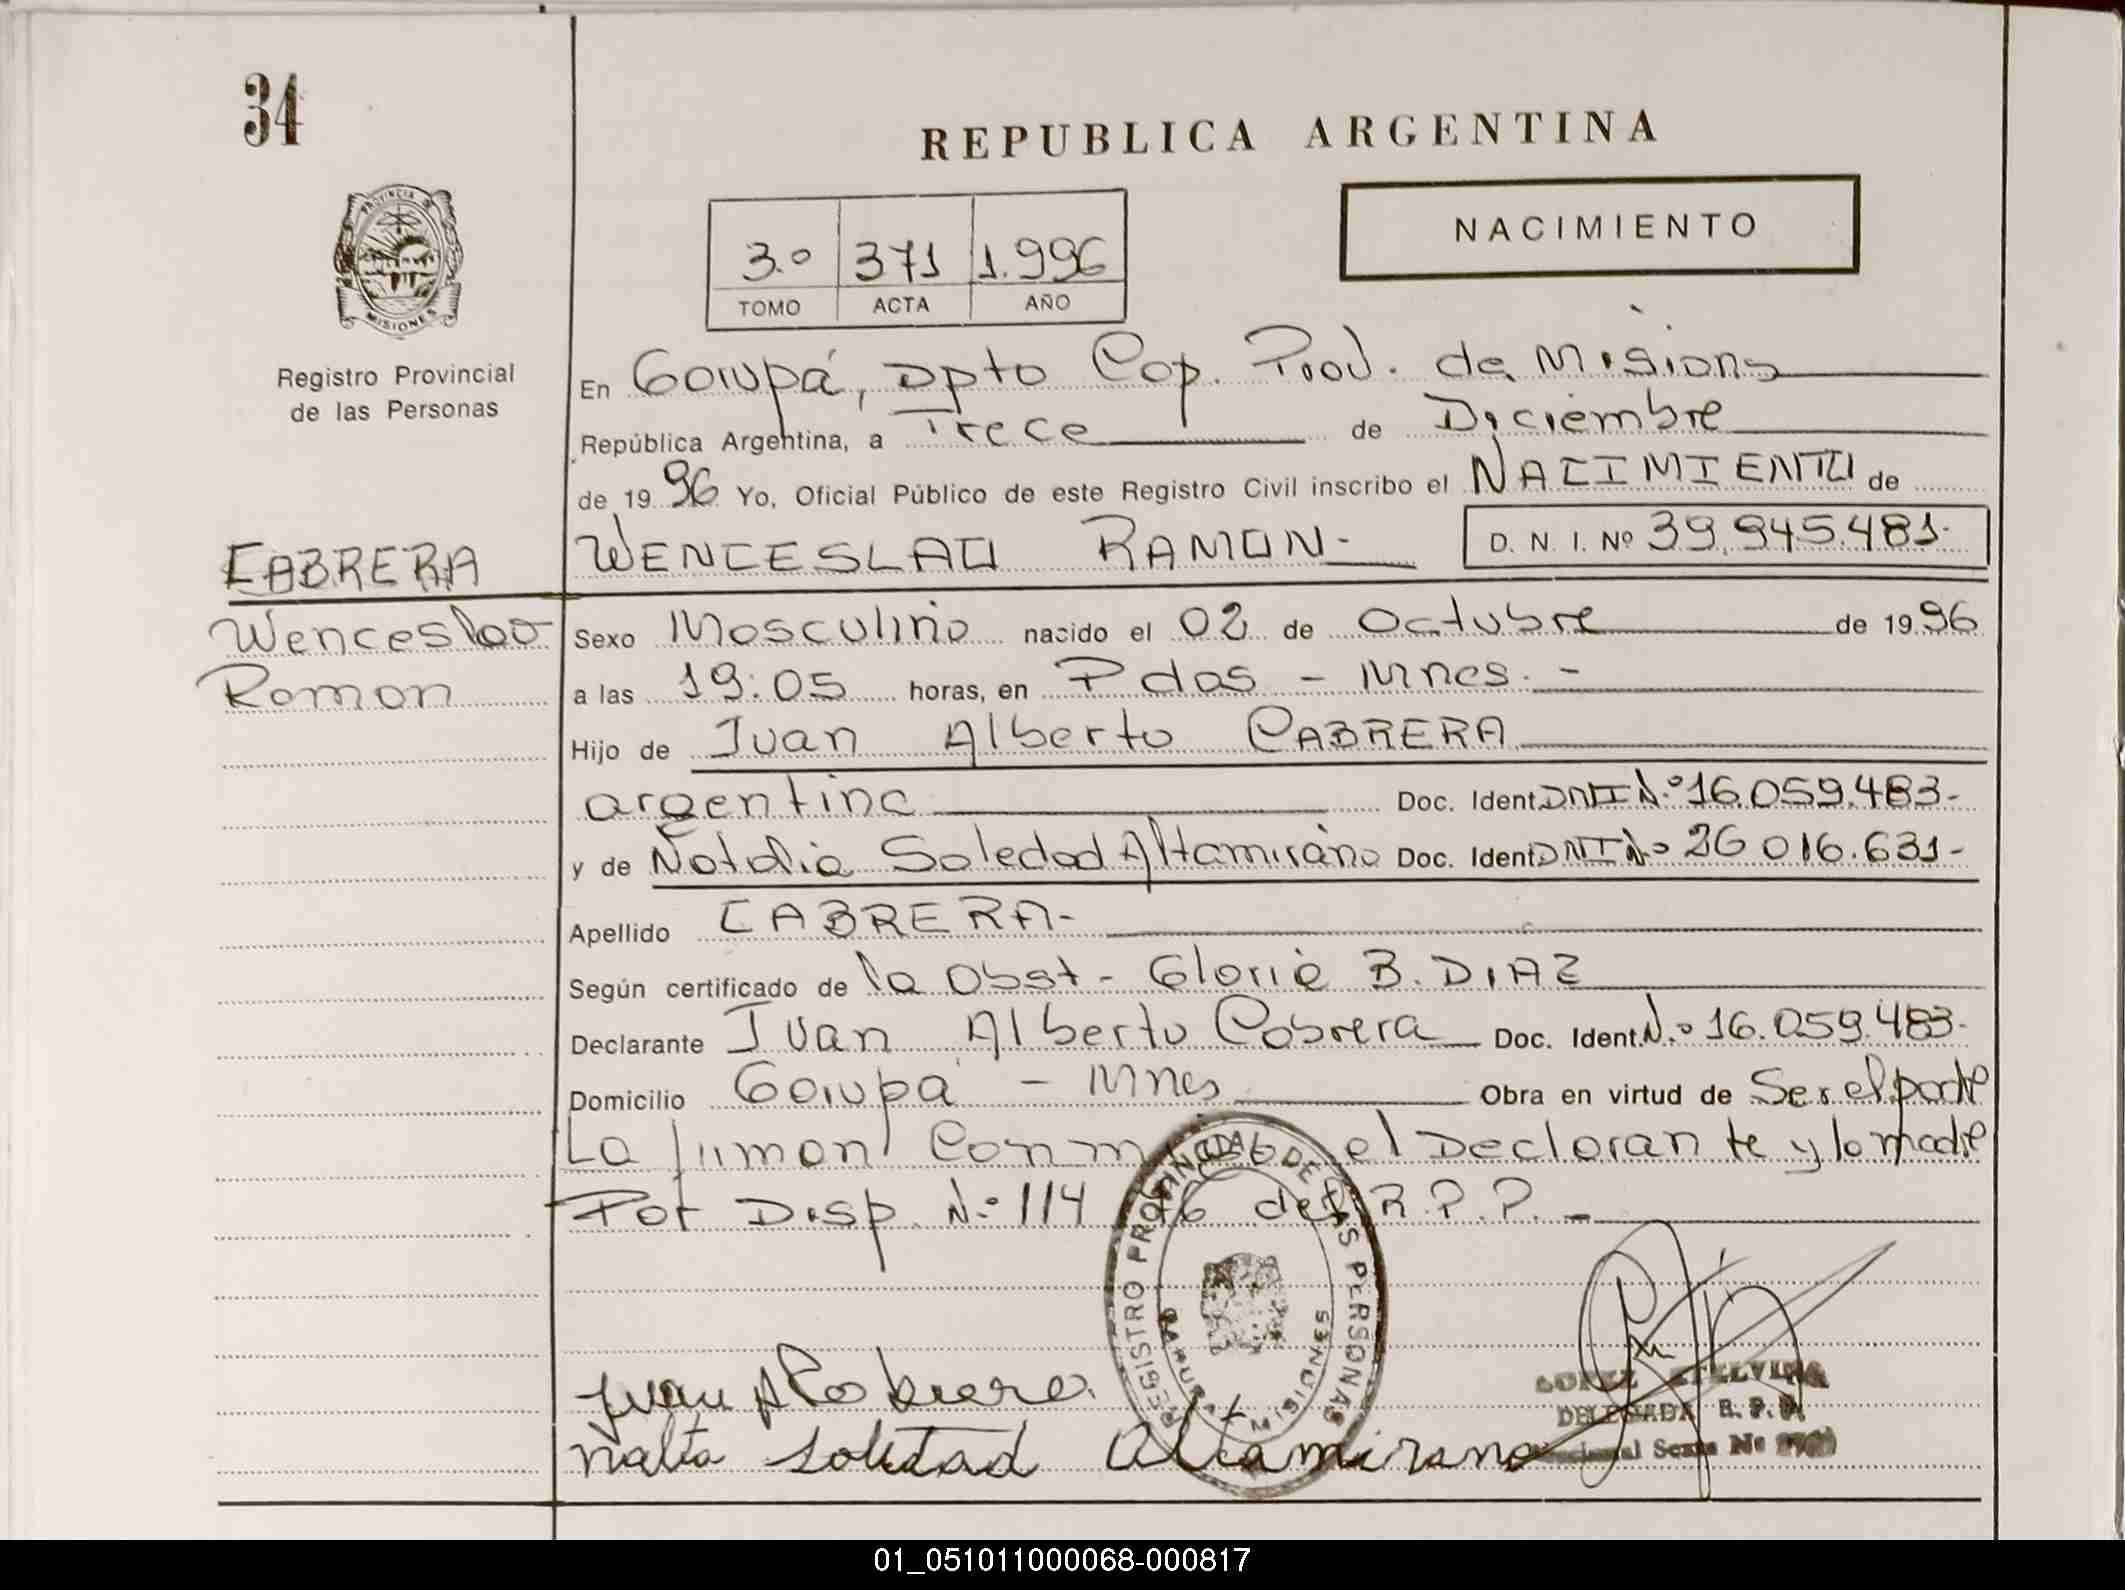 34
REPUBLICA ARGENTINA
PROVINCIA DE MISIONES
3.º 371 1.996
TOMO ACTA AÑO
NACIMIENTO
Registro Provincial
de las Personas
En Garupá, Dpto Cap. Prov. de Misions
República Argentina, a Trece de Diciembre
de 1996 Yo, Oficial Público de este Registro Civil inscribo el NACIMIENTO de
CABRERA WENCESLAO RAMON- D. N. I. Nº 39.945.481-
Wenceslao
Ramon
Sexo Masculino nacido el 02 de Octubre de 1996
a las 19:05 horas, en Pdas - Mnes. -
Hijo de Juan Alberto CABRERA
argentina Doc. Ident. DNI N.º 16.059.483-
y de Natalia Soledad Altamirano Doc. Ident DNI N.º 26 016.631-
Apellido CABRERA-
Según certificado de la Obst- Gloria B. DIAZ
Declarante Juan Alberto Cabrera Doc. Ident. N.º 16.059.483-
Domicilio Garupá - Mnes Obra en virtud de Ser el padre
La firman conmigo el Declarante y la madre
Por Disp. N.º 114 96 del R.P.P. -
REGISTRO PROVINCIAL DE LAS PERSONAS
GARUPA MISIONES
Juan A Cabrera.
Nalta Soledad Altamirano
DELEGADA R. P. P.
01_051011000068-000817